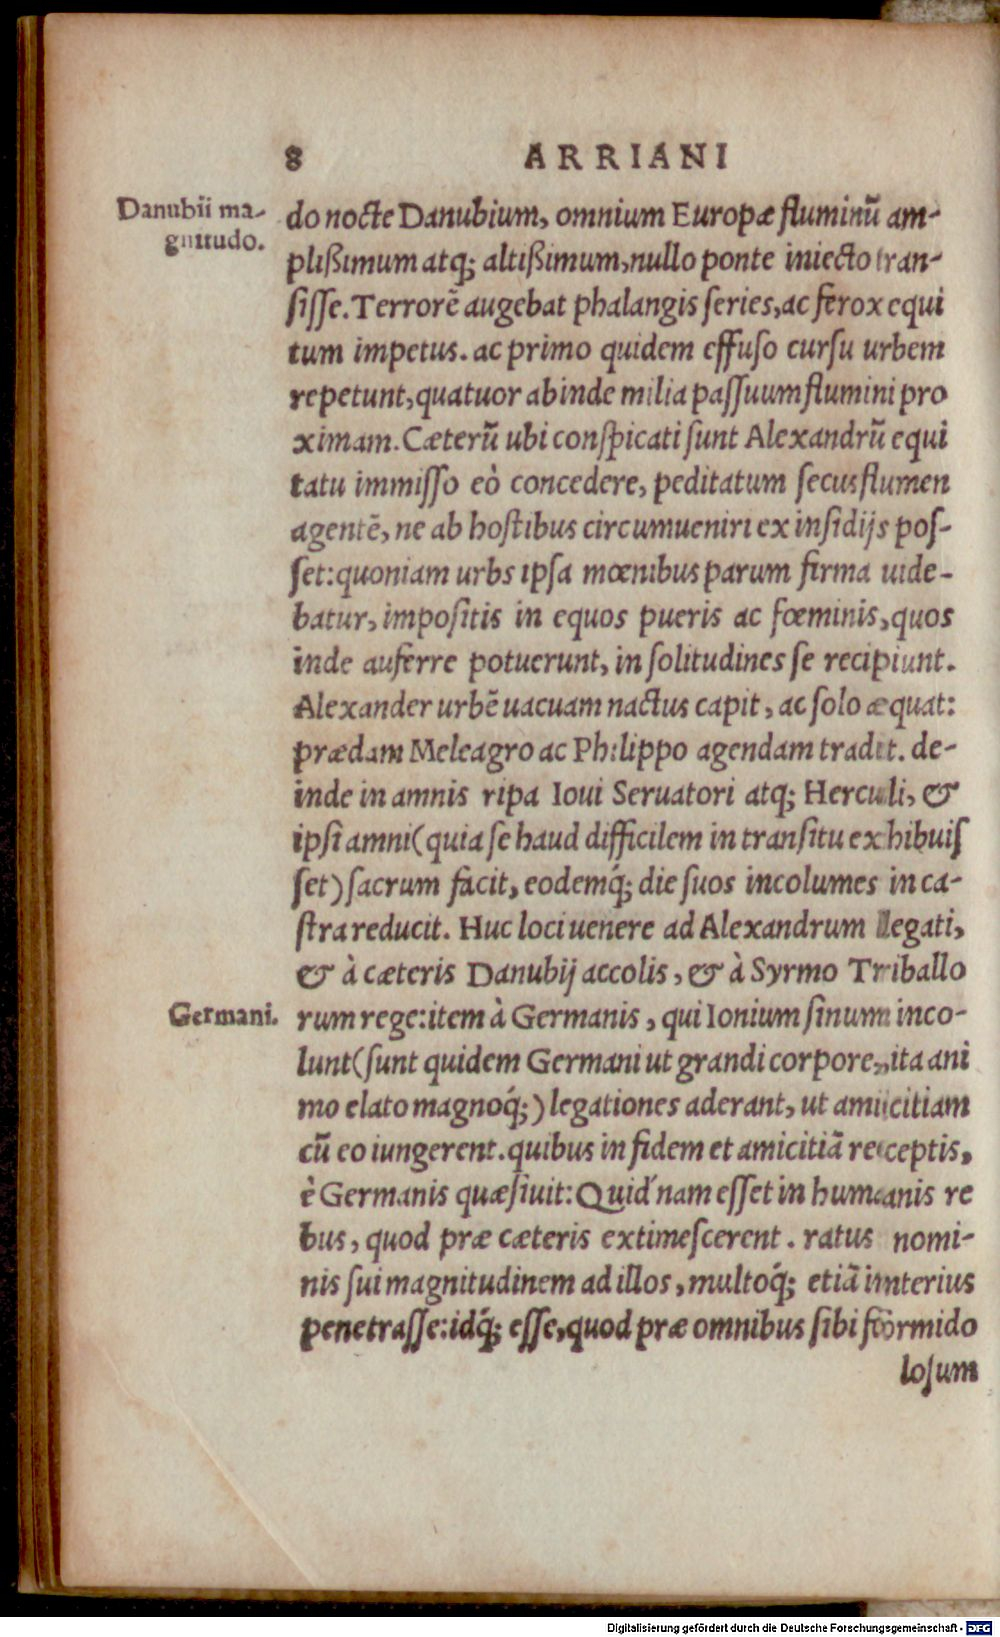 8 ARRIANI
Danubii ma-
gnitudo.
do nocte Danubium, omnium Europæ fluminũ am-
plißimum atq; altißimum, nullo ponte iniecto tran-
ſiſſe. Terrorẽ augebat phalangis ſeries, ac ferox equi
tum impetus. ac primo quidem effuſo curſu urbem
repetunt, quatuor abinde milia paſſuum flumini pro
ximam. Cæterũ ubi conſpicati ſunt Alexandrũ equi
tatu immiſſo eò concedere, peditatum ſecus flumen
agentẽ, ne ab hoſtibus circumueniri ex inſidijs poſ-
ſet: quoniam urbs ipſa mœnibus parum firma uide-
batur, impoſitis in equos pueris ac fœminis, quos
inde auferre potuerunt, in ſolitudines ſe recipiunt.
Alexander urbẽ uacuam nactus capit, ac ſolo æquat:
prædam Meleagro ac Philippo agendam tradit. de-
inde in amnis ripa Ioui Seruatori atq; Herculi, &
ipſi amni (quia ſe haud difficilem in tranſitu exhibuiſ
ſet) ſacrum facit, eodemq́; die ſuos incolumes in ca-
ſtra reducit. Huc loci uenere ad Alexandrum legati,
& à cæteris Danubij accolis, & à Syrmo Triballo
Germani.
rum rege: item à Germanis, qui Ionium ſinum inco-
lunt (ſunt quidem Germani ut grandi corpore, ita ani
mo elato magnoq́;) legationes aderant, ut amicitiam
cũ eo iungerent. quibus in fidem et amicitiã receptis,
è Germanis quæſiuit: Quid'nam eſſet in humanis re
bus, quod præ cæteris extimeſcerent. ratus nomi-
nis ſui magnitudinem ad illos, multoq́; etiã interius
penetraſſe: idq́; eſſe, quod præ omnibus ſibi formido
loſum
Digitalisierung gefördert durch die Deutsche Forschungsgemeinschaft - DFG